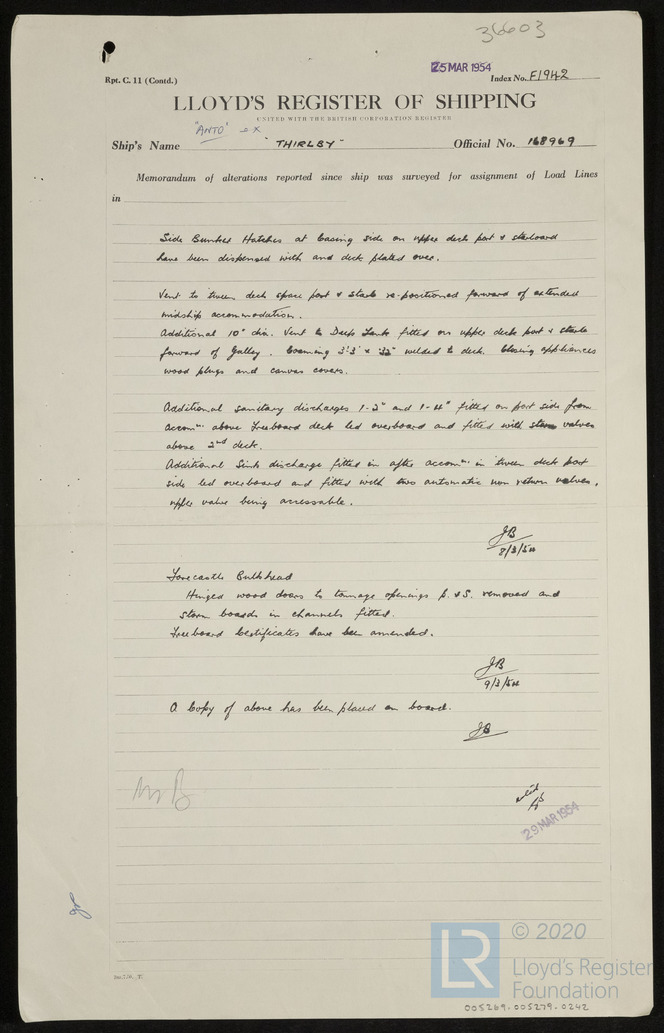 36603
25 MAR 1954
Rpt. C. 11 (Contd.)
Index No. F1942
LLOYD'S REGISTER OF SHIPPING
UNITED WITH THE BRITISH CORPORATION REGISTER
"ANTO" ex
Ship's Name "THIRLBY" Official No. 168969
Memorandum of alterations reported since ship was surveyed for assignment of Load Lines
in
Side Bunker Hatches at Casing side on upper deck port & starboard
have been dispensed with and deck plated over.
Vent to tween deck space port & starb re-positioned forward of extended
midship accommodation.
Additional 10" dia. Vent to Deep Tanks fitted on upper deck port & starb
forward of Galley. Coaming 3'3" x .32" welded to deck. Closing appliances
wood plugs and canvas covers.
Additional sanitary discharges 1-2" and 1-4" fitted on port side from
accomn. above Freeboard deck led overboard and fitted with storm valves
above 2nd deck.
Additional Sink discharge fitted in after accomn. in tween deck port
side led overboard and fitted with two automatic non return valves,
upper valve being accessable.
JB
8/3/54
Forecastle Bulkhead
Hinged wood doors to tonnage openings P. & S. removed and
storm boards in channels fitted.
Freeboard Certificates have been amended.
JB
9/3/54
A Copy of above has been placed on board.
JB
29 MAR 1954
LR
© 2020
Lloyd's Register
Foundation
005269-005279-0242